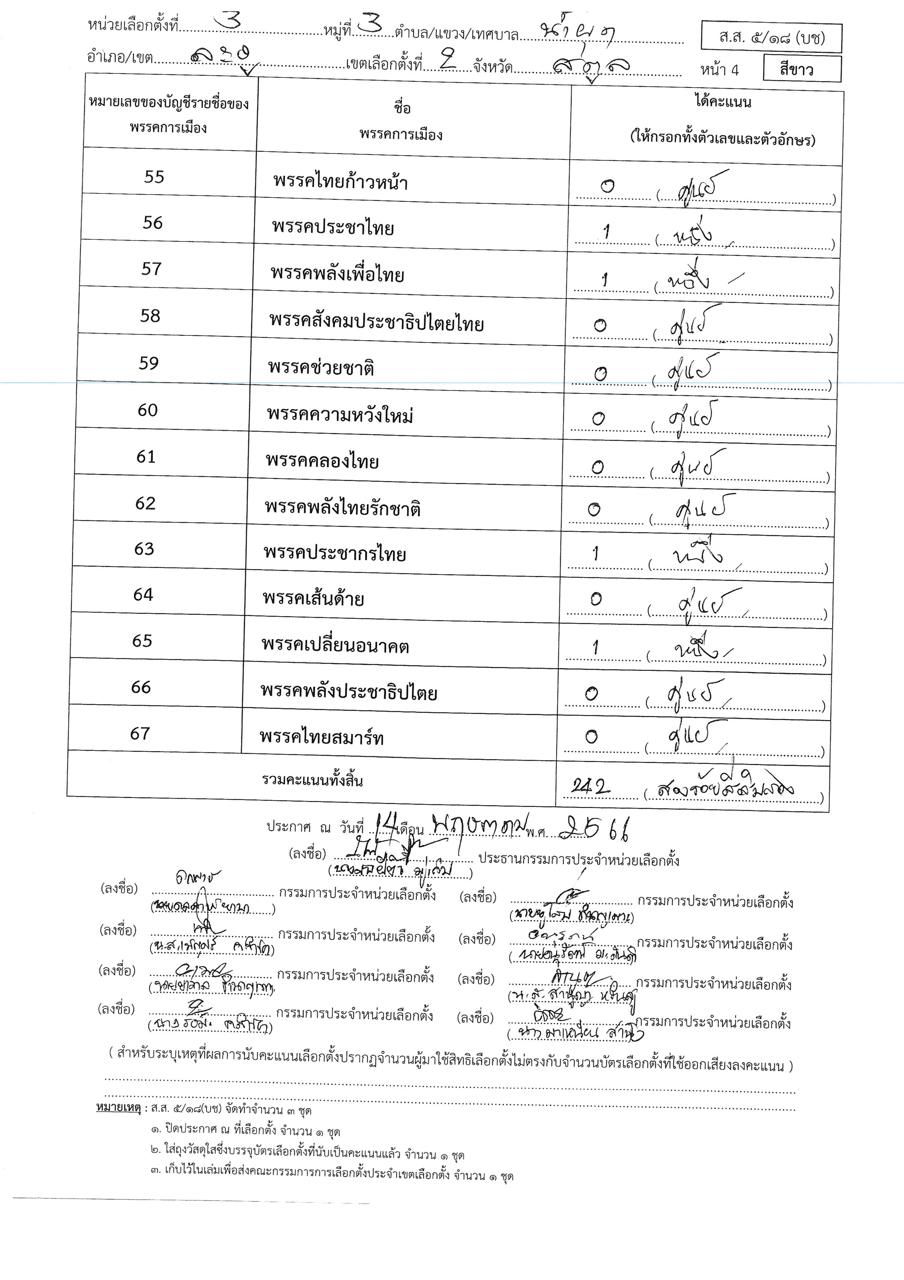 หน่วยเลือกตั้งที่ 3 หมู่ที่ 3 ตำบล/แขวง/เทศบาล น้ำผุด
ส.ส. ๕/๑๘ (บช)
อำเภอ/เขต ละงู เขตเลือกตั้งที่ 2 จังหวัด สตูล หน้า 4 สีขาว
หมายเลขของบัญชีรายชื่อของพรรคการเมือง ชื่อพรรคการเมือง ได้คะแนน (ให้กรอกทั้งตัวเลขและตัวอักษร)
55 พรรคไทยก้าวหน้า 0 (ศูนย์)
56 พรรคประชาไทย 1 (หนึ่ง)
57 พรรคพลังเพื่อไทย 1 (หนึ่ง)
58 พรรคสังคมประชาธิปไตยไทย 0 (ศูนย์)
59 พรรคช่วยชาติ 0 (ศูนย์)
60 พรรคความหวังใหม่ 0 (ศูนย์)
61 พรรคคลองไทย 0 (ศูนย์)
62 พรรคพลังไทยรักชาติ 0 (ศูนย์)
63 พรรคประชากรไทย 1 (หนึ่ง)
64 พรรคเส้นด้าย 0 (ศูนย์)
65 พรรคเปลี่ยนอนาคต 1 (หนึ่ง)
66 พรรคพลังประชาธิปไตย 0 (ศูนย์)
67 พรรคไทยสมาร์ท 0 (ศูนย์)
รวมคะแนนทั้งสิ้น 242 (สองร้อยสี่สิบสอง)
ประกาศ ณ วันที่ 14 เดือน พฤษภาคม พ.ศ. 2566
(ลงชื่อ) ประธานกรรมการประจำหน่วยเลือกตั้ง
(ลงชื่อ) กรรมการประจำหน่วยเลือกตั้ง (ลงชื่อ) กรรมการประจำหน่วยเลือกตั้ง
(ลงชื่อ) กรรมการประจำหน่วยเลือกตั้ง (ลงชื่อ) กรรมการประจำหน่วยเลือกตั้ง
(ลงชื่อ) กรรมการประจำหน่วยเลือกตั้ง (ลงชื่อ) กรรมการประจำหน่วยเลือกตั้ง
(ลงชื่อ) กรรมการประจำหน่วยเลือกตั้ง (ลงชื่อ) กรรมการประจำหน่วยเลือกตั้ง
( สำหรับระบุเหตุที่ผลการนับคะแนนเลือกตั้งปรากฏจำนวนผู้มาใช้สิทธิเลือกตั้งไม่ตรงกับจำนวนบัตรเลือกตั้งที่ใช้ออกเสียงลงคะแนน )
หมายเหตุ : ส.ส. ๕/๑๘(บช) จัดทำจำนวน ๓ ชุด
๑. ปิดประกาศ ณ ที่เลือกตั้ง จำนวน ๑ ชุด
๒. ใส่ถุงวัสดุใสซึ่งบรรจุบัตรเลือกตั้งที่นับเป็นคะแนนแล้ว จำนวน ๑ ชุด
๓. เก็บไว้ในเล่มเพื่อส่งคณะกรรมการการเลือกตั้งประจำเขตเลือกตั้ง จำนวน ๑ ชุด